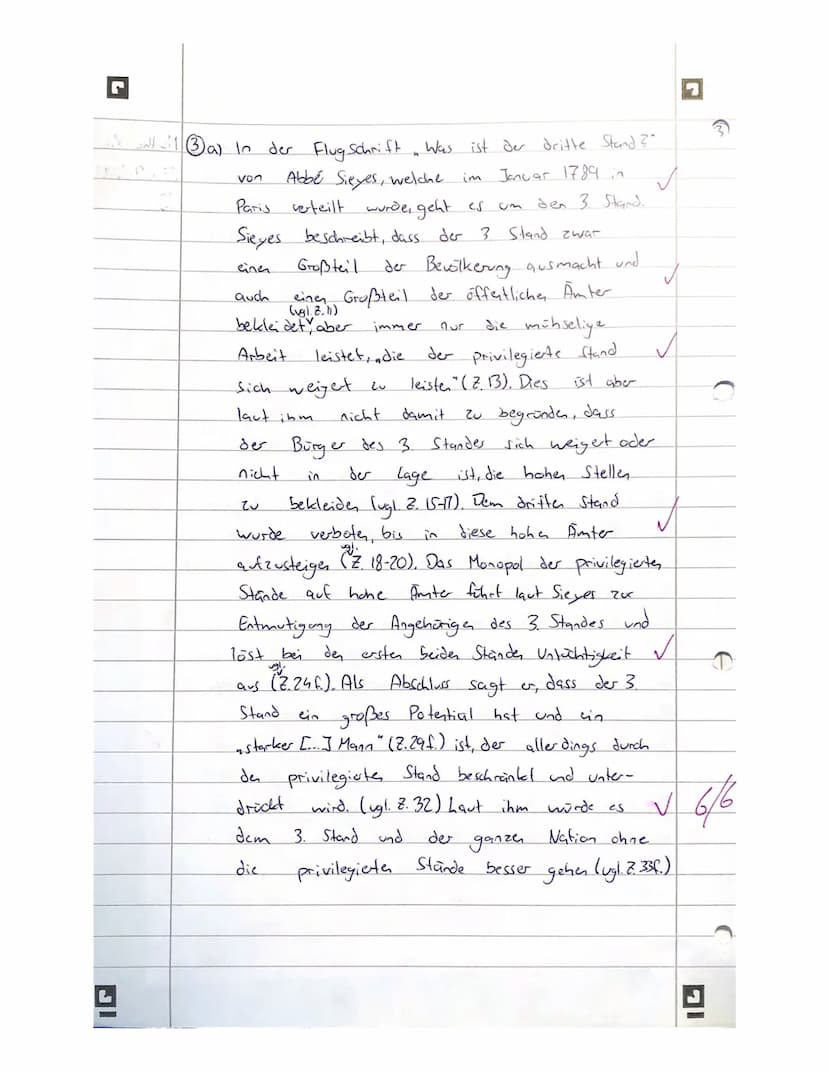 3
③a) In der Flugschrift „Was ist der dritte Stand?"
von Abbé Sieyes, welche im Januar 1789 in
Paris verteilt wurde, geht es um den 3. Stand.
Sieyes beschreibt, dass der 3 Stand zwar
einen Großteil der Bevölkerung ausmacht und
auch einen Großteil der öffentlichen Ämter
(vgl. Z. 11)
bekleidet, aber immer nur die mühselige
Arbeit leistet, „die der privilegierte Stand
sich weigert zu leisten" (Z. 13). Dies ist aber
laut ihm nicht damit zu begründen, dass
der Bürger des 3. Standes sich weigert oder
nicht in der Lage ist, die hohen Stellen
zu bekleiden (vgl. Z. 15-17). Dem dritten Stand
wurde verboten, bis in diese hohen Ämter
vgl.
aufzusteigen (Z. 18-20). Das Monopol der privilegierten
Stände auf hohe Ämter führt laut Sieyes zur
Entmutigung der Angehörigen des 3. Standes und
löst bei den ersten beiden Ständen Untüchtigkeit
vgl.
aus (Z. 24 f.). Als Abschluss sagt er, dass der 3.
Stand ein großes Potential hat und ein
„starker [...] Mann" (Z. 29 f.) ist, der allerdings durch
den privilegierten Stand beschränkt und unter-
drückt wird. (vgl. Z. 32) Laut ihm würde es 6/6
dem 3. Stand und der ganzen Nation ohne
die privilegierten Stände besser gehen (vgl. Z. 33f.)